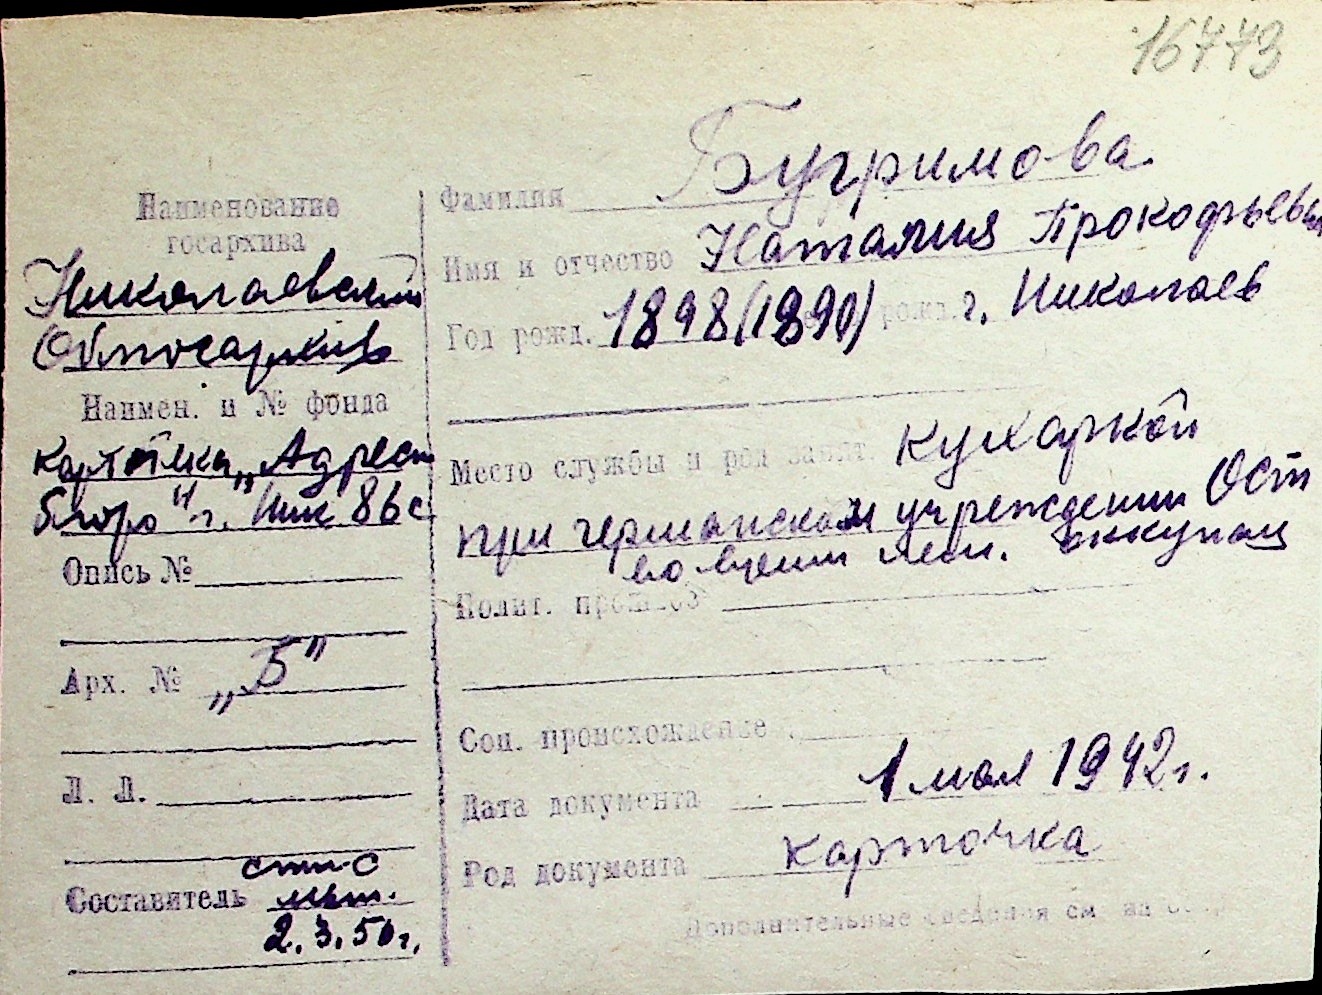 16773
Наименование
госархива
Николаевский
Облгосархив
Наимен. и № фонда
картотека „Адресн
бюро" г. Ник 86с
Опись №
Арх. № „Б"
Л. Л.
Составитель
2.3.50г.
Фамилия Бугримова
Имя и отчество Наталия Прокофьевна
Год рожд. 1898(1890) рожд. г. Николаев
Место службы и род занят. кухаркой
при германском учреждении Ост
во время нем. оккупац
Полит. прошлое
Соц. происхождение
Дата документа 1 мая 1942г.
Род документа карточка
Дополнительные сведения см на